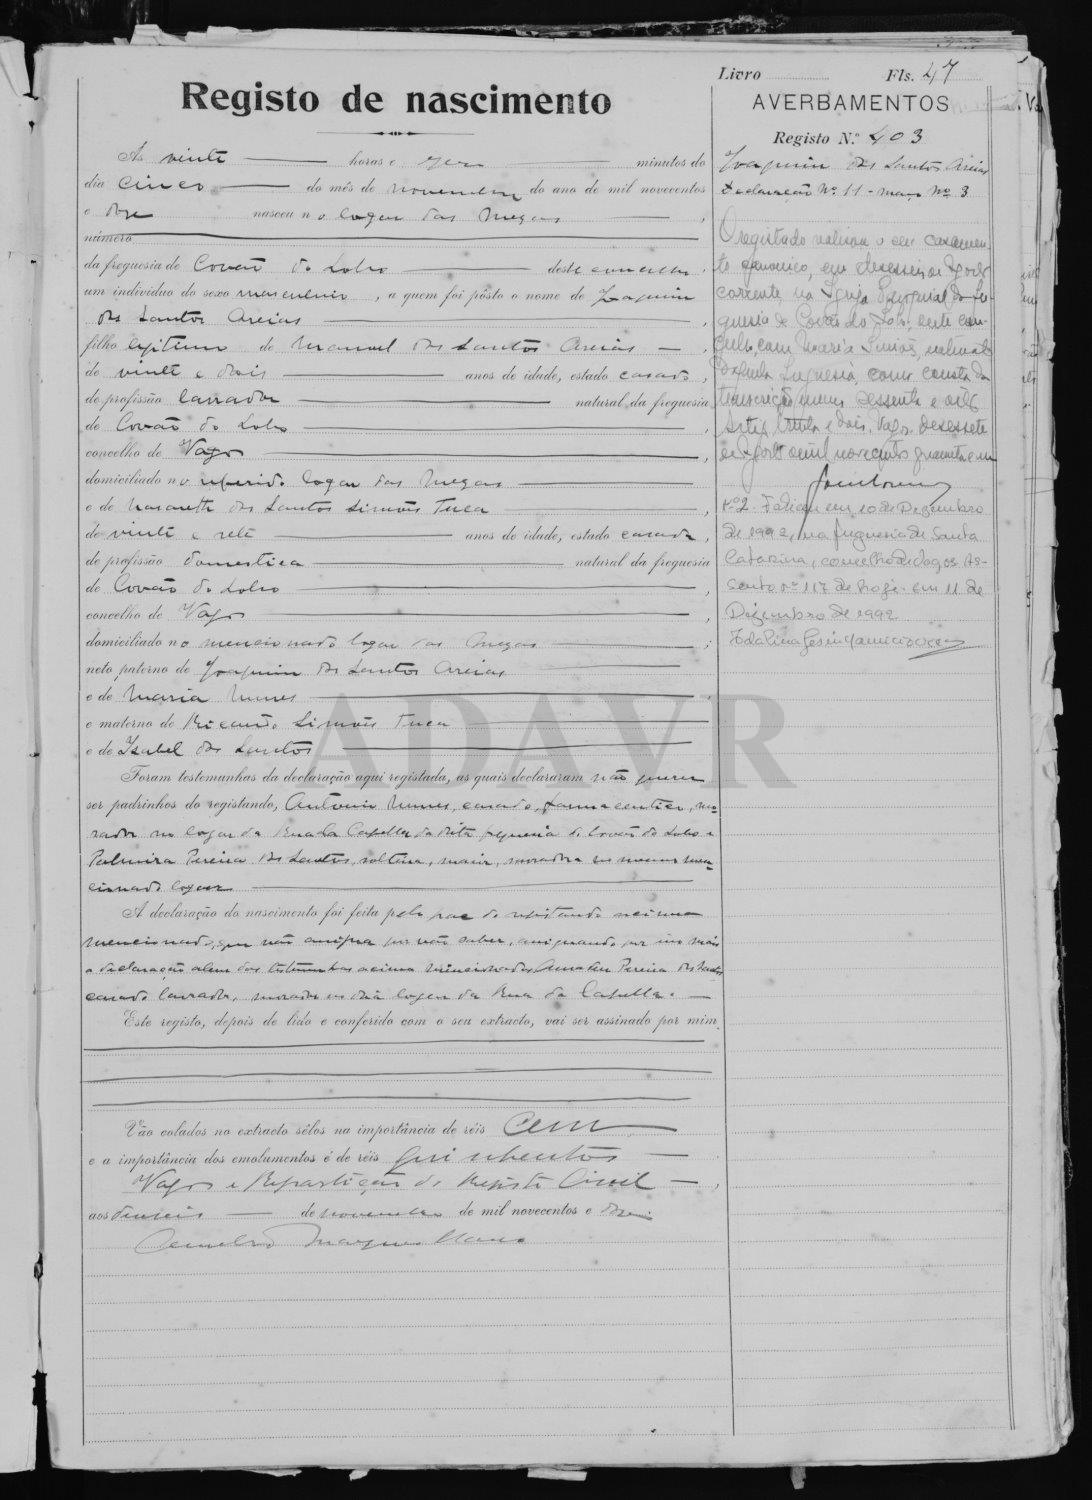 Livro Fls. 47
Registo de nascimento
AVERBAMENTOS
Registo N.º 403
Ás vinte horas e minutos do
dia cinco do mês de novembro do ano de mil novecentos
e nasceu no logar das
número
da freguesia de Covão do Lobo deste concelho
um indivíduo do sexo masculino, a quem foi pôsto o nome de Joaquim
dos Santos Areias
filho legitimo de Manuel dos Santos Areias
de vinte e dois anos de idade, estado casado,
de profissão lavrador natural da freguesia
de Covão do Lobo
concelho de Vagos,
domiciliado no referido logar das
e de Nasareth dos Santos Simões Tuca
de vinte e sete anos de idade, estado casada,
de profissão domestica natural da freguesia
de Covão do Lobo
concelho de Vagos,
domiciliado no mencionado logar das ;
neto paterno de Joaquim dos Santos Areias
e de Maria Nunes,
e materno de Ricardo Simões Tuca
e de Isabel dos Santos
Foram testemunhas da declaração aqui registada, as quais declararam não querer
ser padrinhos do registando, Antonio Nunes, casado, farmaceutico, mo-
rador no logar da Rua da Capella da dita freguesia de Covão do Lobo e
Palmira Pereira dos Santos, solteira, maior, moradora no mesmo men-
cionado logar
A declaração do nascimento foi feita pelo pae do registando acima
mencionado, que não assigna por não saber, assignando por mais
a declaração alem das testemunhas acima mencionadas Amadeu Pereira dos Santos
casado lavrador, morador no dito logar da Rua da Capella.
Este registo, depois de lido e conferido com o seu extracto, vai ser assinado por mim.
Vão colados no extracto sêlos na importância de réis Cem
e a importância dos emolumentos é de réis quinhentos
Vagos e Repartição do Registo Civil,
aos de novembro de mil novecentos e
Joaquim dos Santos Areias
Declaração Nº 11 - maço Nº 3
O registado realizou o seu casamen-
to canonico, em desesseis de Agosto
corrente na Igreja Paroquial da fre-
guesia de Covão do Lobo, deste con-
celho, com Maria Simões, natural
daquela freguesia, como consta da
transcrição numero sessenta e oito
trinta e dois. Vagos, desessete
de Agosto de mil novecentos quarenta e um
Nº 2 - Faleceu em 10 de Dezembro
de 1992, na freguesia de Santa
Catarina, concelho de Vagos. As-
sento nº 117 de hoje. em 11 de
Dezembro de 1992
ADAVR